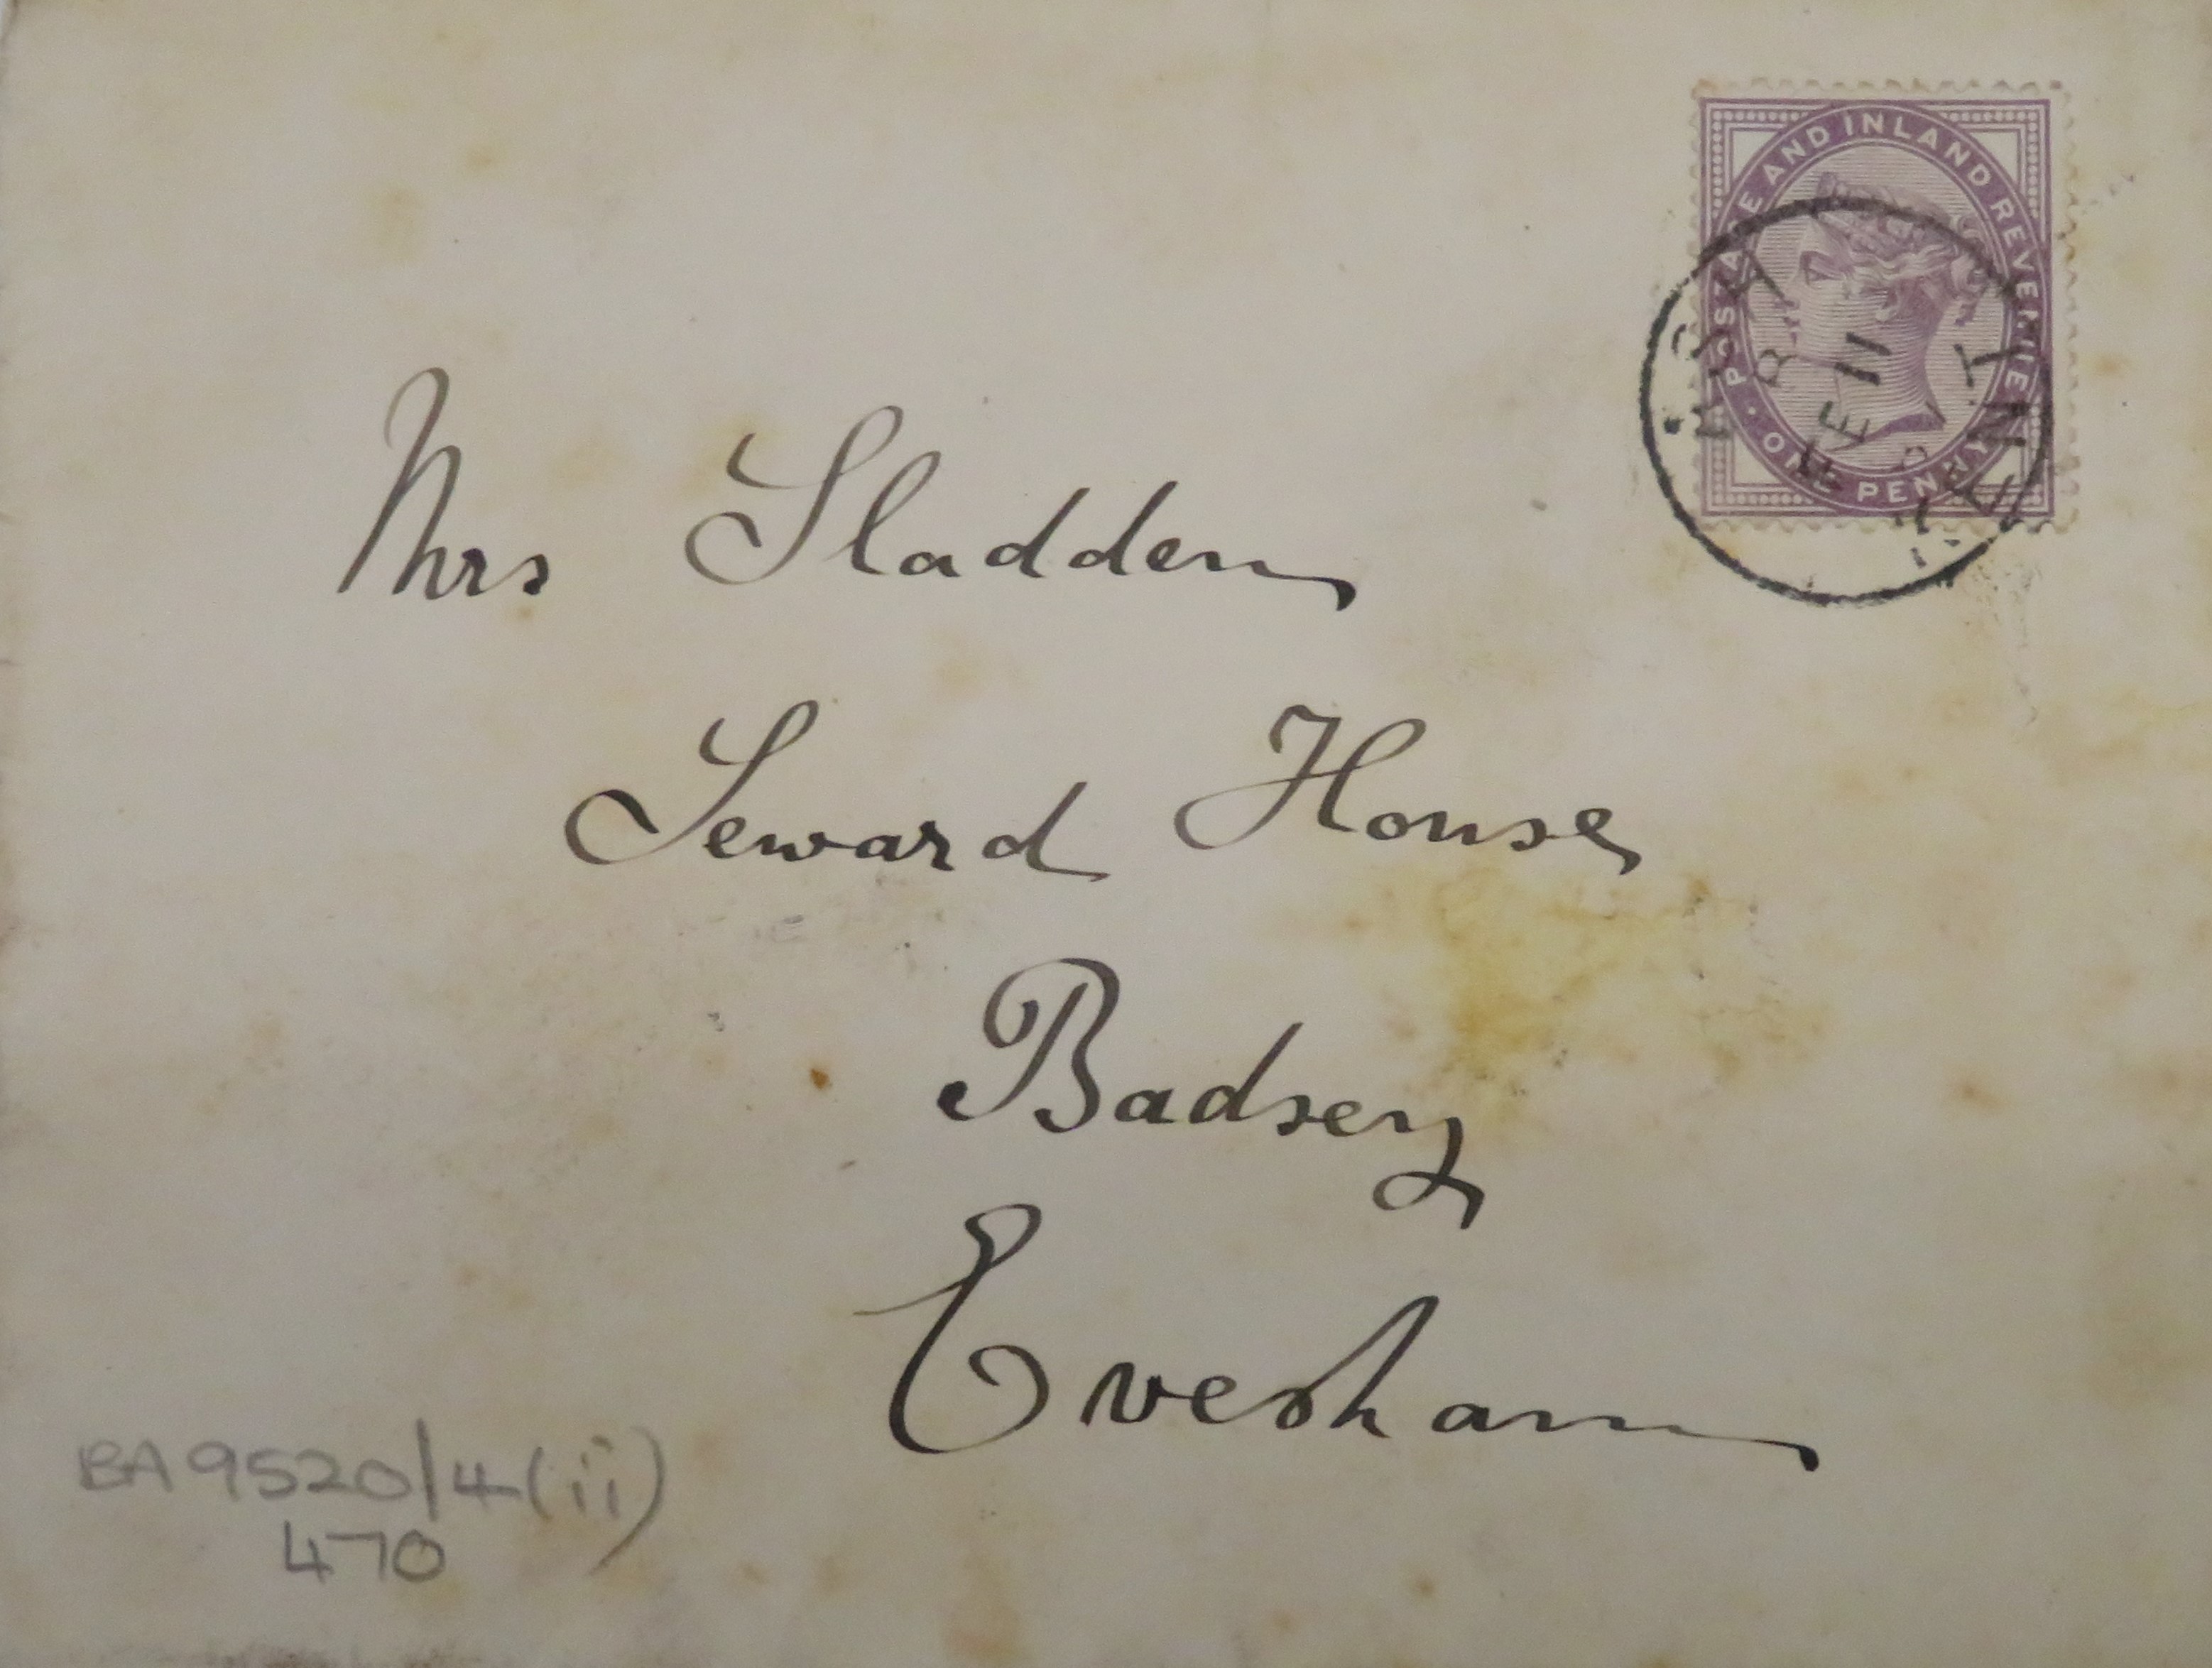 POSTAGE AND INLAND REVENUE
ONE PENNY
FE 11
Mrs Sladden
Seward House
Badsey
Evesham
BA 9520/4(ii)
470